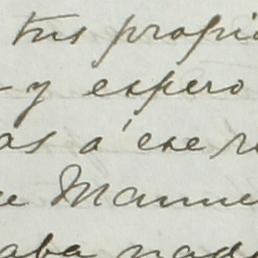 tus propio
- y espero
as a' ese r
e Manue
aba nada